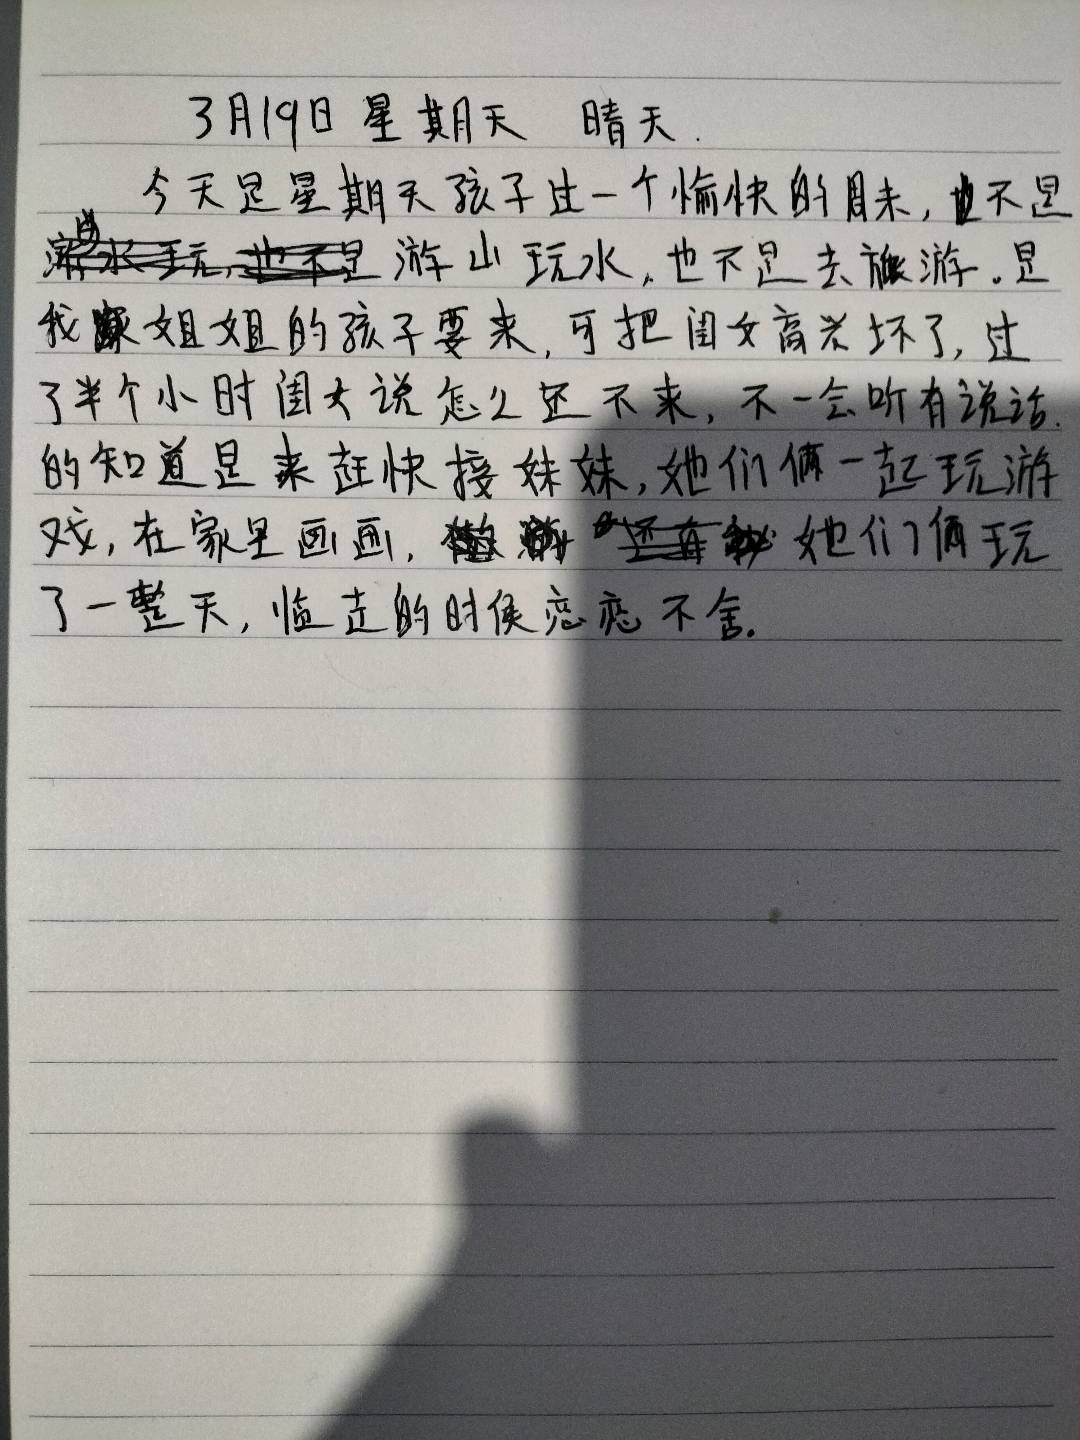 3月19日 星期天 晴天.
今天是星期天孩子过一个愉快的周末,也不是
游山玩水,也不是去旅游.是
我家姐姐的孩子要来,可把闺女高兴坏了,过
了半个小时闺女说怎么还不来,不一会听有说话.
的知道是来赶快接妹妹,她们俩一起玩游
戏,在家里画画, 她们俩玩
了一整天,临走的时候恋恋不舍.